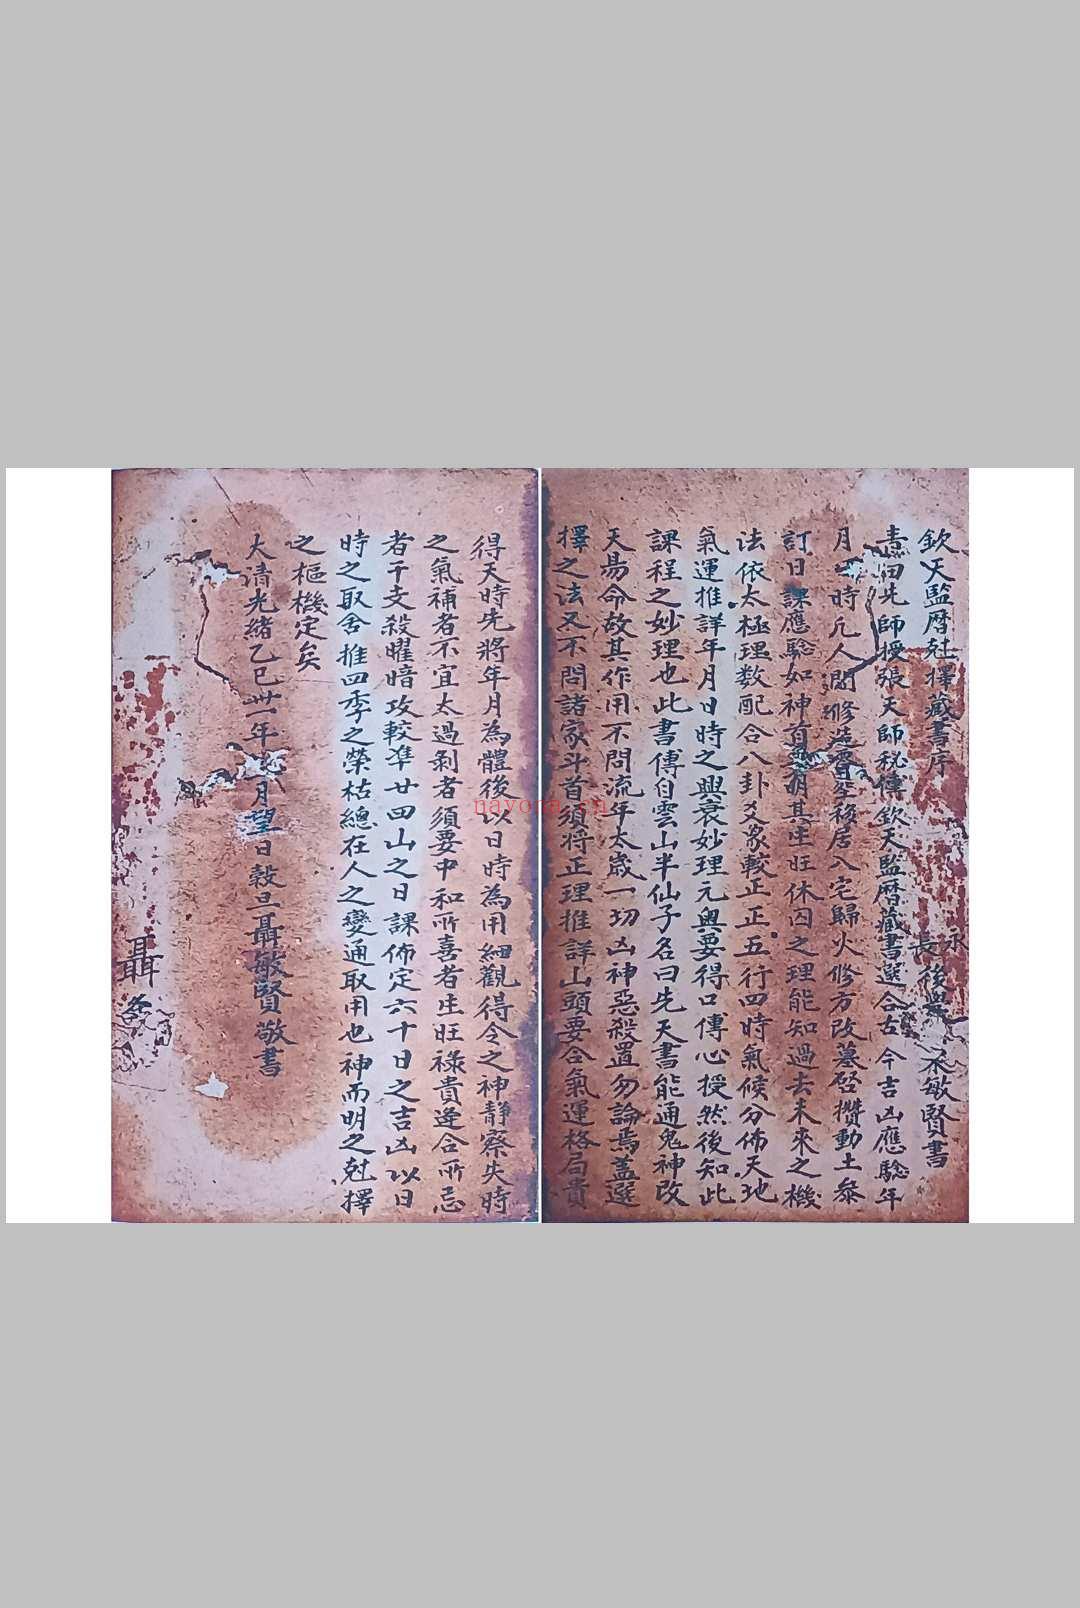 欽天監曆尅擇藏書序
長後學 敏賢書
曰先師授張天師秘傳欽天監曆藏書選合古今吉凶應騐年
月 時凡人間修造 移居入宅歸火修方改墓啓攢動土叅
訂日課應騐如神首 明其生旺休囚之理能知過去未來之機
法依太極理数配合八卦爻象較正正五行四時氣候分佈天地
氣運推詳年月日時之興衰妙理元奥要得口傳心授然後知此
課程之妙理也此書傳自雲山半仙子名曰先天書能通鬼神改
天易命故其作用不問流年太歲一切凶神惡殺置勿論焉蓋選
擇之法又不問諸家斗首須将正理推詳山頭要合氣運格局貴
得天時先將年月為體後以日時為用細觀得令之神靜察失時
之氣補者不宜太過剝者須要中和所喜者生旺祿貴逢合所忌
者干支殺曜暗攻較準廿四山之日課佈定六十日之吉凶以日
時之取舍推四季之榮枯總在人之變通取用也神而明之尅擇
之樞機定矣
大清光緒乙巳卅一年 月望日穀旦聶敏賢敬書
聶
nayona.cn